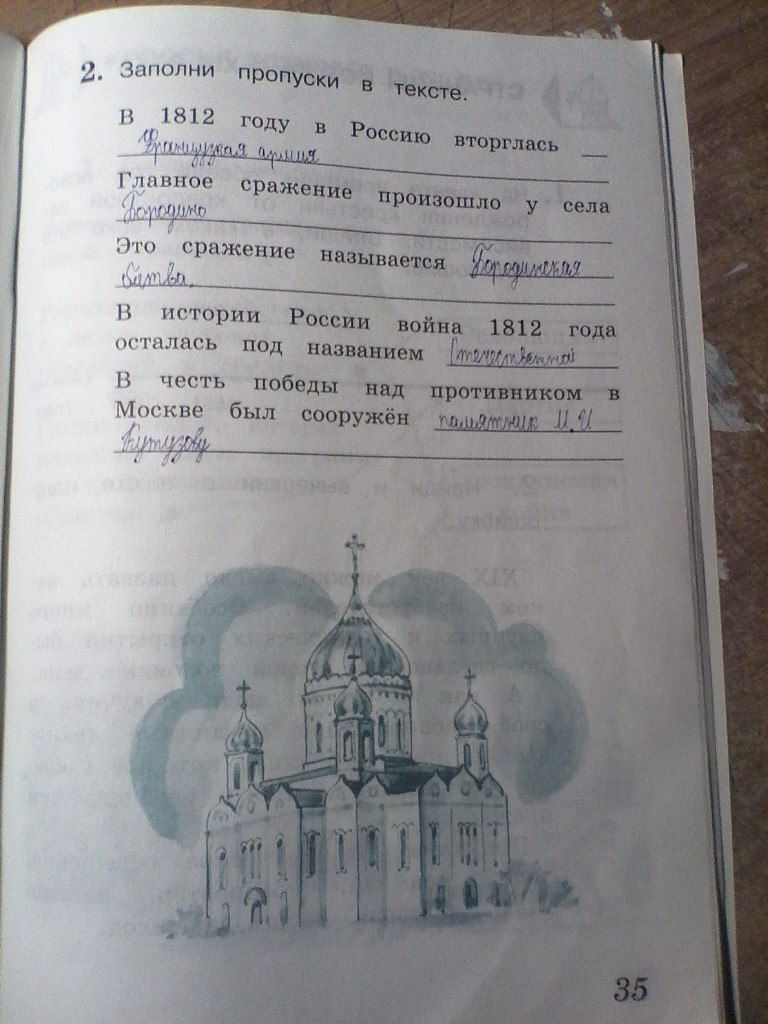 2. Заполни пропуски в тексте.
В 1812 году в Россию вторглась
Французкая армия
Главное сражение произошло у села
Бородино
Это сражение называется Бородинская
батва.
В истории России война 1812 года
осталась под названием Отечественной
В честь победы над противником в
Москве был сооружён памятник М.И
Кутузову
35